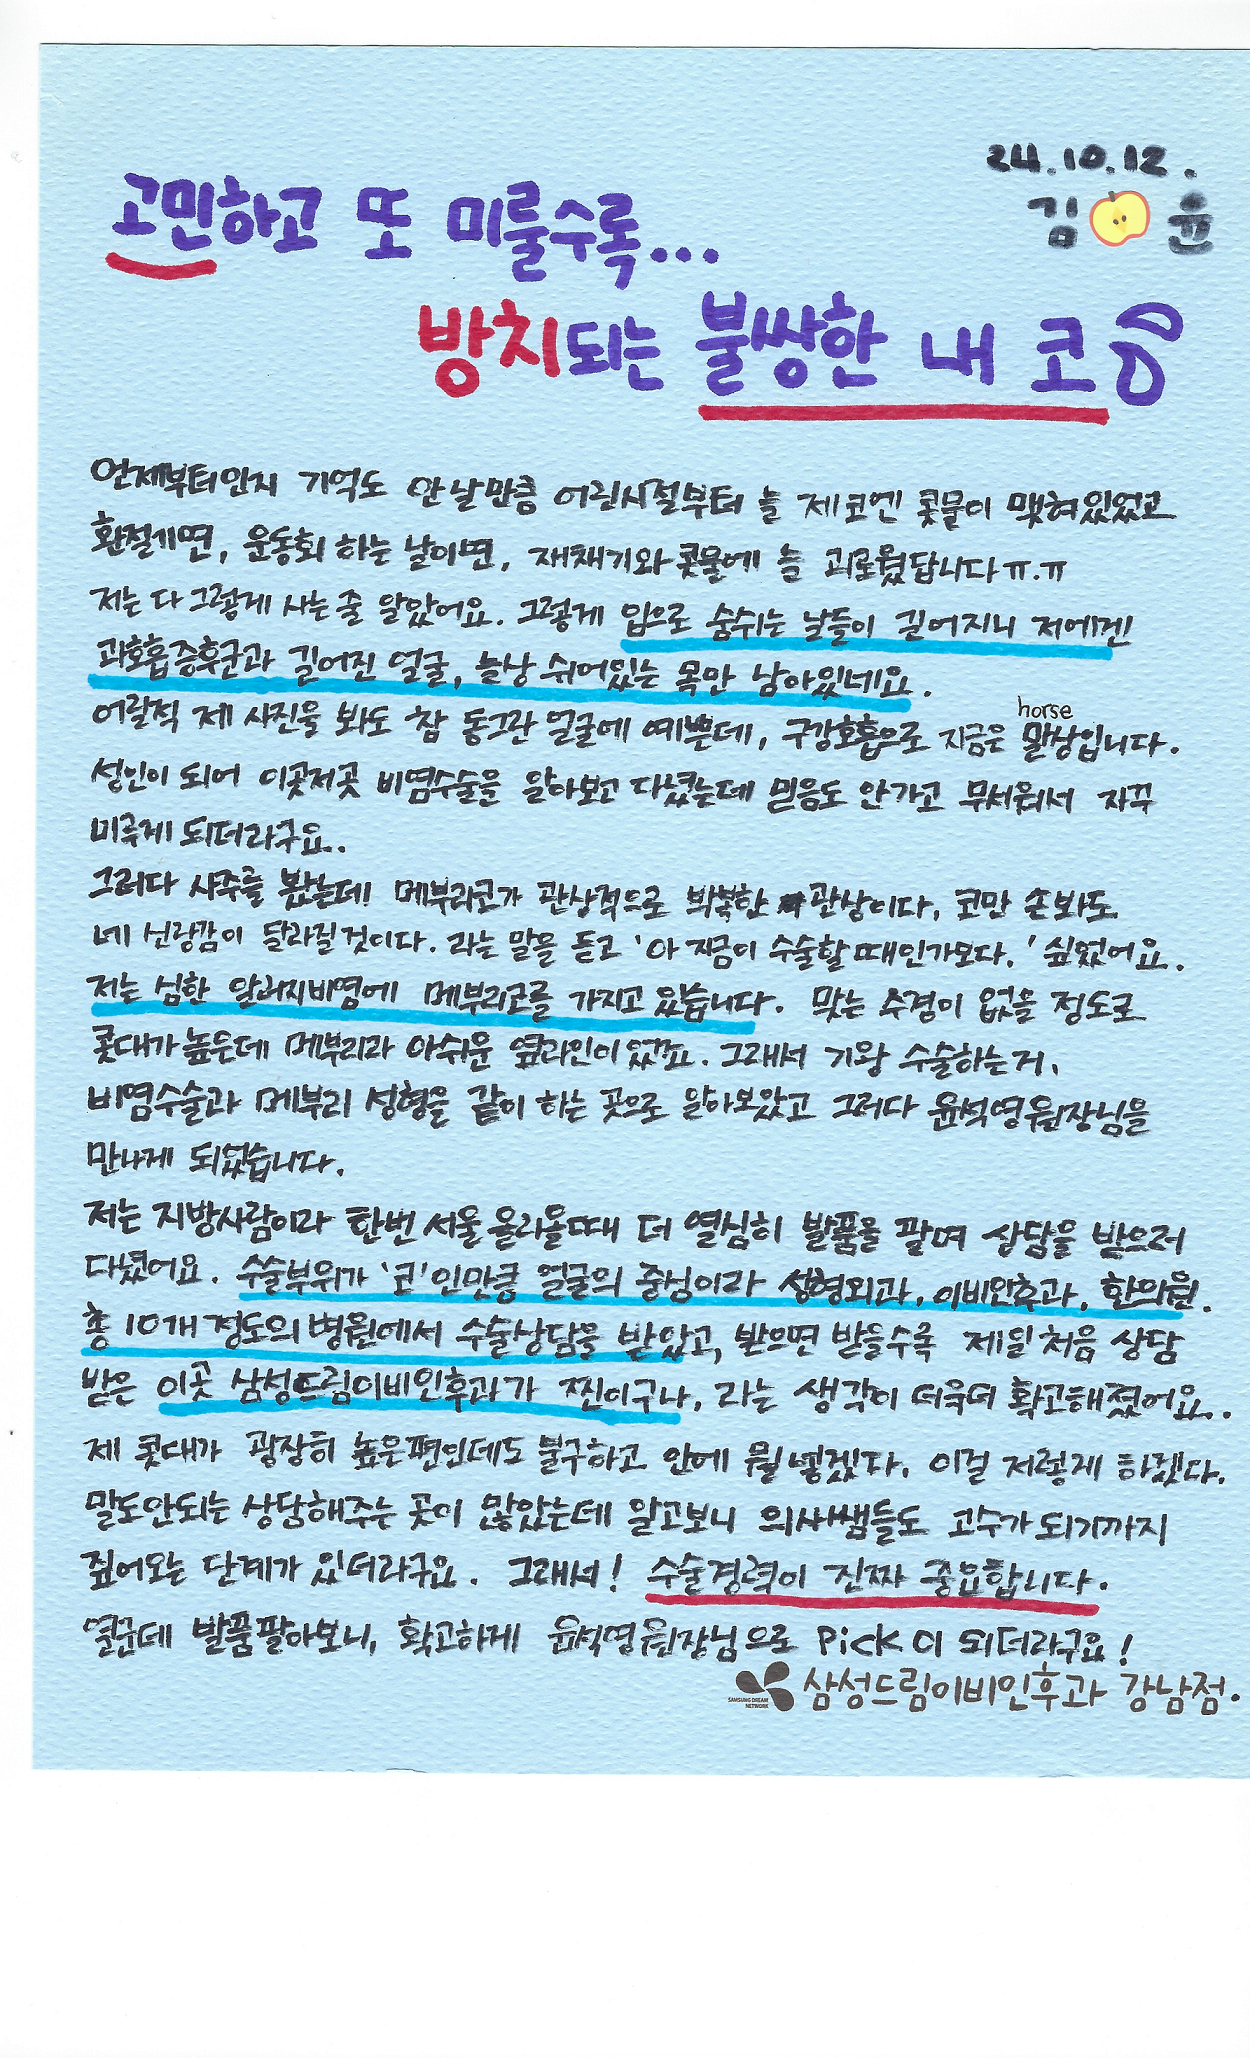 24.10.12.
김 윤
고민하고 또 미룰수록...
방치되는 불쌍한 내 코
언제부터인지 기억도 안 날만큼 어린시절부터 늘 제 코엔 콧물이 맺혀있었고
환절기면, 운동회 하는 날이면, 재채기와 콧물에 늘 괴로웠답니다ㅠ.ㅠ
저는 다 그렇게 사는 줄 알았어요. 그렇게 입으로 숨쉬는 날들이 길어지니 저에겐
과호흡증후군과 길어진 얼굴, 늘상 쉬어있는 목만 남아있네요.
horse
어릴적 제 사진을 봐도 참 동그란 얼굴에 예쁜데, 구강호흡으로 지금은 말상입니다.
성인이 되어 이곳저곳 비염수술을 알아보고 다녔는데 믿음도 안가고 무서워서 자꾸
미루게 되더라구요..
그러다 사주를 봤는데! 메부리코가 관상적으로 박복한 관상이다, 코만 손봐도
네 선광감이 달라질것이다. 라는 말을 듣고 '아 지금이 수술할 때인가보다.' 싶었어요.
저는 심한 알러지비염에 메부리코를 가지고 있습니다. 맞는 수경이 없을 정도로
콧대가 높은데 메부리라 아쉬운 옆라인이 있었죠. 그래서 기왕 수술하는거,
비염수술과 메부리 성형을 같이 하는 곳으로 알아보았고 그러다 윤석영원장님을
만나게 되었습니다.
저는 지방사람이라 한번 서울 올라올때 더 열심히 발품을 팔며 상담을 받으러
다녔어요. 수술부위가 '코'인만큼 얼굴의 중심이라 성형외과, 이비인후과, 한의원.
총 10개 정도의 병원에서 수술상담을 받았고, 받으면 받을수록 제일 처음 상담
받은 이곳 삼성드림이비인후과가 찐이구나, 라는 생각이 더욱더 확고해졌어요..
제 콧대가 굉장히 높은편인데도 불구하고 안에 뭘 넣겠다, 이걸 저렇게 하겠다.
말도안되는 상담해주는 곳이 많았는데 알고보니 의사쌤들도 고수가 되기까지
짚어오는 단계가 있더라구요. 그래서! 수술경력이 진짜 중요합니다.
열군데 발품팔아보니, 확고하게 윤석영원장님으로 Pick이 되더라구요!
SAMSUNG DREAM NETWORK 삼성드림이비인후과 강남점.